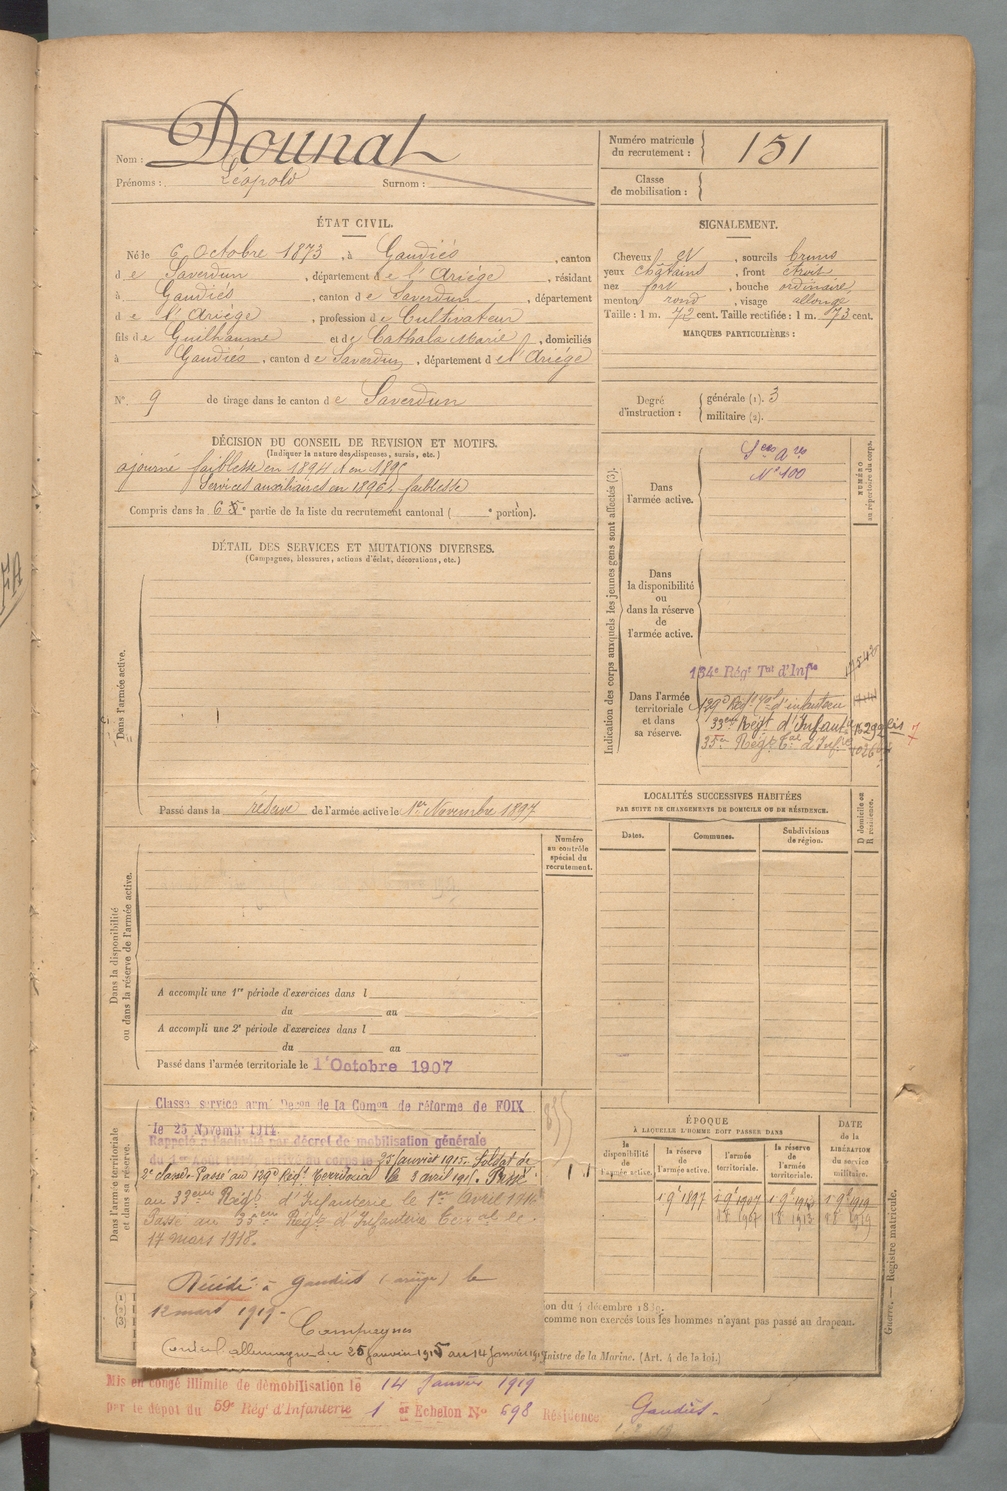 Nom : Dounat
Prénoms : Léopold Surnom :
Numéro matricule du recrutement : 151
Classe de mobilisation :
ÉTAT CIVIL.
Né le 6 Octobre 1873, à Gaudiès, canton
de Saverdun, département de l'Ariège, résidant
à Gaudiès, canton de Saverdun, département
de l'Ariège, profession de Cultivateur
fils de Guilhaume et de Cathala Marie, domiciliés
à Gaudiès, canton de Saverdun, département de l'Ariège
N° 9 de tirage dans le canton de Saverdun
SIGNALEMENT.
Cheveux , sourcils bruns
yeux châtains, front étroit
nez fort, bouche ordinaire,
menton rond, visage allongé
Taille : 1 m. 72 cent. Taille rectifiée : 1 m. 73 cent.
MARQUES PARTICULIÈRES :
Degré d'instruction : générale (1). 3
militaire (2).
DÉCISION DU CONSEIL DE REVISION ET MOTIFS.
(Indiquer la nature des dispenses, sursis, etc.)
ajourné faiblesse en 1894 et en 1895
Services auxiliaires en 1896, faiblesse
Compris dans la 6e partie de la liste du recrutement cantonal ( e portion).
DÉTAIL DES SERVICES ET MUTATIONS DIVERSES.
(Campagnes, blessures, actions d'éclat, décorations, etc.)
Dans l'armée active.
Passé dans la réserve de l'armée active le 1er Novembre 1897
Indication des corps auxquels les jeunes gens sont affectés (3).
NUMÉRO au répertoire du corps.
Dans l'armée active.
Sces Ares
N° 100
Dans la disponibilité ou dans la réserve de l'armée active.
Dans l'armée territoriale et dans sa réserve.
134e Régt Tal d'Infie
129e Régt Tal d'infanterie
33eme Régt d'Infanterie
35e Régt Tal d'Infie
LOCALITÉS SUCCESSIVES HABITÉES
PAR SUITE DE CHANGEMENTS DE DOMICILE OU DE RÉSIDENCE.
Dates. Communes. Subdivisions de région.
D domicile ou R résidence.
Numéro au contrôle spécial du recrutement.
Dans la disponibilité ou dans la réserve de l'armée active.
A accompli une 1re période d'exercices dans l
du au
A accompli une 2e période d'exercices dans l
du au
Passé dans l'armée territoriale le 1er Octobre 1907
Dans l'armée territoriale et dans sa réserve.
Classé service armé Decon de la Comon de réforme de FOIX
le 25 Novembre 1914.
Rappelé à l'activité par décret de mobilisation générale
du 1er Août 1914, arrivé au corps le 25 Janvier 1915. Soldat de
2e classe. Passé au 129e Régt Territorial le 8 avril 1915. Passé
au 33eme Régt d'Infanterie le 1er Avril
Passé au 35e Régt d'Infanterie Teral le
17 mars 1918.
Décédé à Gaudiès (Ariège) le
12 mars 1919.
Campagnes
Contre l'allemagne du 25 janvier 1915 au 14 Janvier 1919
ÉPOQUE
À LAQUELLE L'HOMME DOIT PASSER DANS
la disponibilité de l'armée active.
la réserve de l'armée active.
l'armée territoriale.
la réserve de l'armée territoriale.
DATE de la LIBÉRATION du service militaire.
1 9e 1897 1 9e 1907 1 9e 1913 1 9e 1919
1 8 1907 1 8 1913 1 8 1919
comme non exercés tous les hommes n'ayant pas passé au drapeau.
Ministre de la Marine. (Art. 4 de la loi.)
Guerre. — Registre matricule.
Mis en congé illimité de démobilisation le 14 Janvier 1919
par le dépôt du 59e Régt d'Infanterie 1er Echelon N° 698 Résidence Gaudiès.